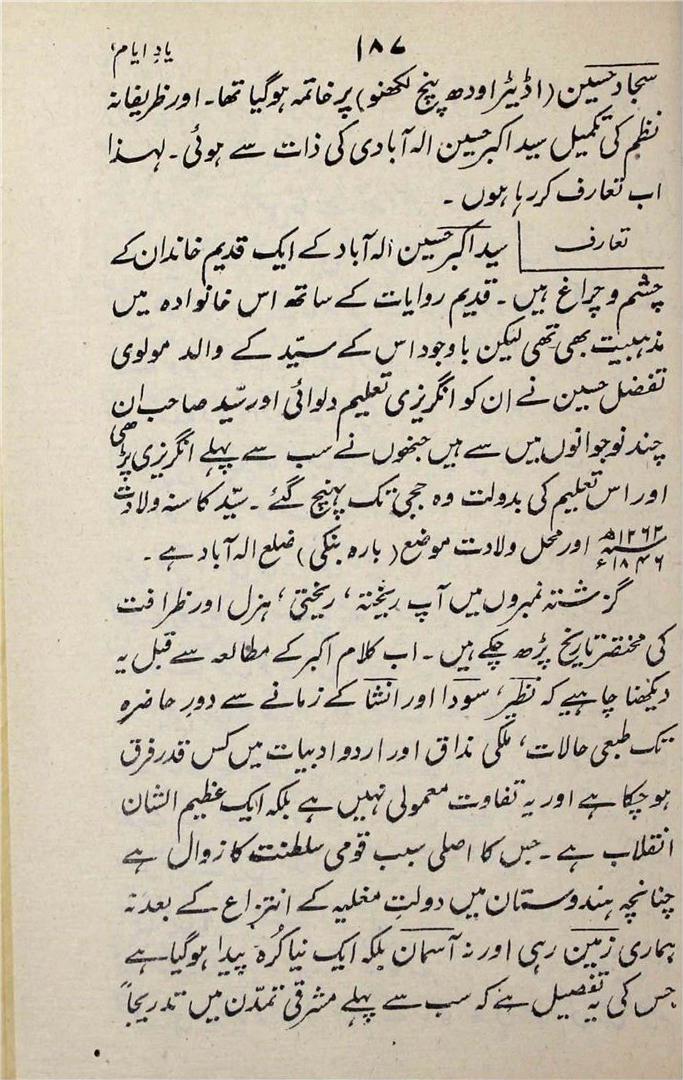 ۱۸۷ یادِ ایام،
سجاد حسین (اڈیٹر اودھ پنچ لکھنو) پر خاتمہ ہوگیا تھا۔ اور ظریفانہ
نظم کی تکمیل سید اکبر حسین الہ آبادی کی ذات سے ہوئی۔ لہذا
اب تعارف کر رہا ہوں۔
تعارف سید اکبر حسین الہ آباد کے ایک قدیم خاندان کے
چشم و چراغ ہیں۔ قدیم روایات کے ساتھ اس خانوادہ میں
مذہبیت بھی تھی لیکن باوجود اس کے سیّد کے والد مولوی
تفضل حسین نے ان کو انگریزی تعلیم دلوائی اور سیّد صاحب ان
چند نوجوانوں میں سے ہیں جنھوں نے سب سے پہلے انگریزی پڑھی
اور اس تعلیم کی بدولت وہ ججی تک پہنچ گئے۔ سیّد کا سنہ ولادت
۱۲۶۲ھ ۱۸۴۶ء اور محل ولادت موضع (بارہ بنکی) ضلع الہ آباد ہے۔
گزشتہ نمبروں میں آپ ریختہ، ریختی، ہزل اور ظرافت
کی مختصر تاریخ پڑھ چکے ہیں۔ اب کلام اکبر کے مطالعہ سے قبل یہ
دیکھنا چاہیے کہ نظیر، سودا اور انشا کے زمانے سے دور حاضرہ
تک طبعی حالات، ملکی مذاق اور اردو ادبیات میں کس قدر فرق
ہوچکا ہے اور یہ تفاوت معمولی نہیں ہے بلکہ ایک عظیم الشان
انقلاب ہے۔ جس کا اصلی سبب قومی سلطنت کا زوال ہے
چنانچہ ہندوستان میں دولتِ مغلیہ کے انتزاع کے بعد نہ
ہماری زمین رہی اور نہ آسمان بلکہ ایک نیا کُرہ پیدا ہوگیا ہے
جس کی یہ تفصیل ہے کہ سب سے پہلے مشرقی تمدّن میں تدریجاً